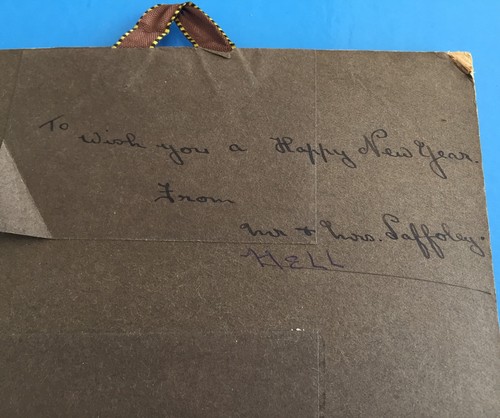 To Wish you a Happy New Year.
From
Mr & Mrs. Paffoley.
HELL